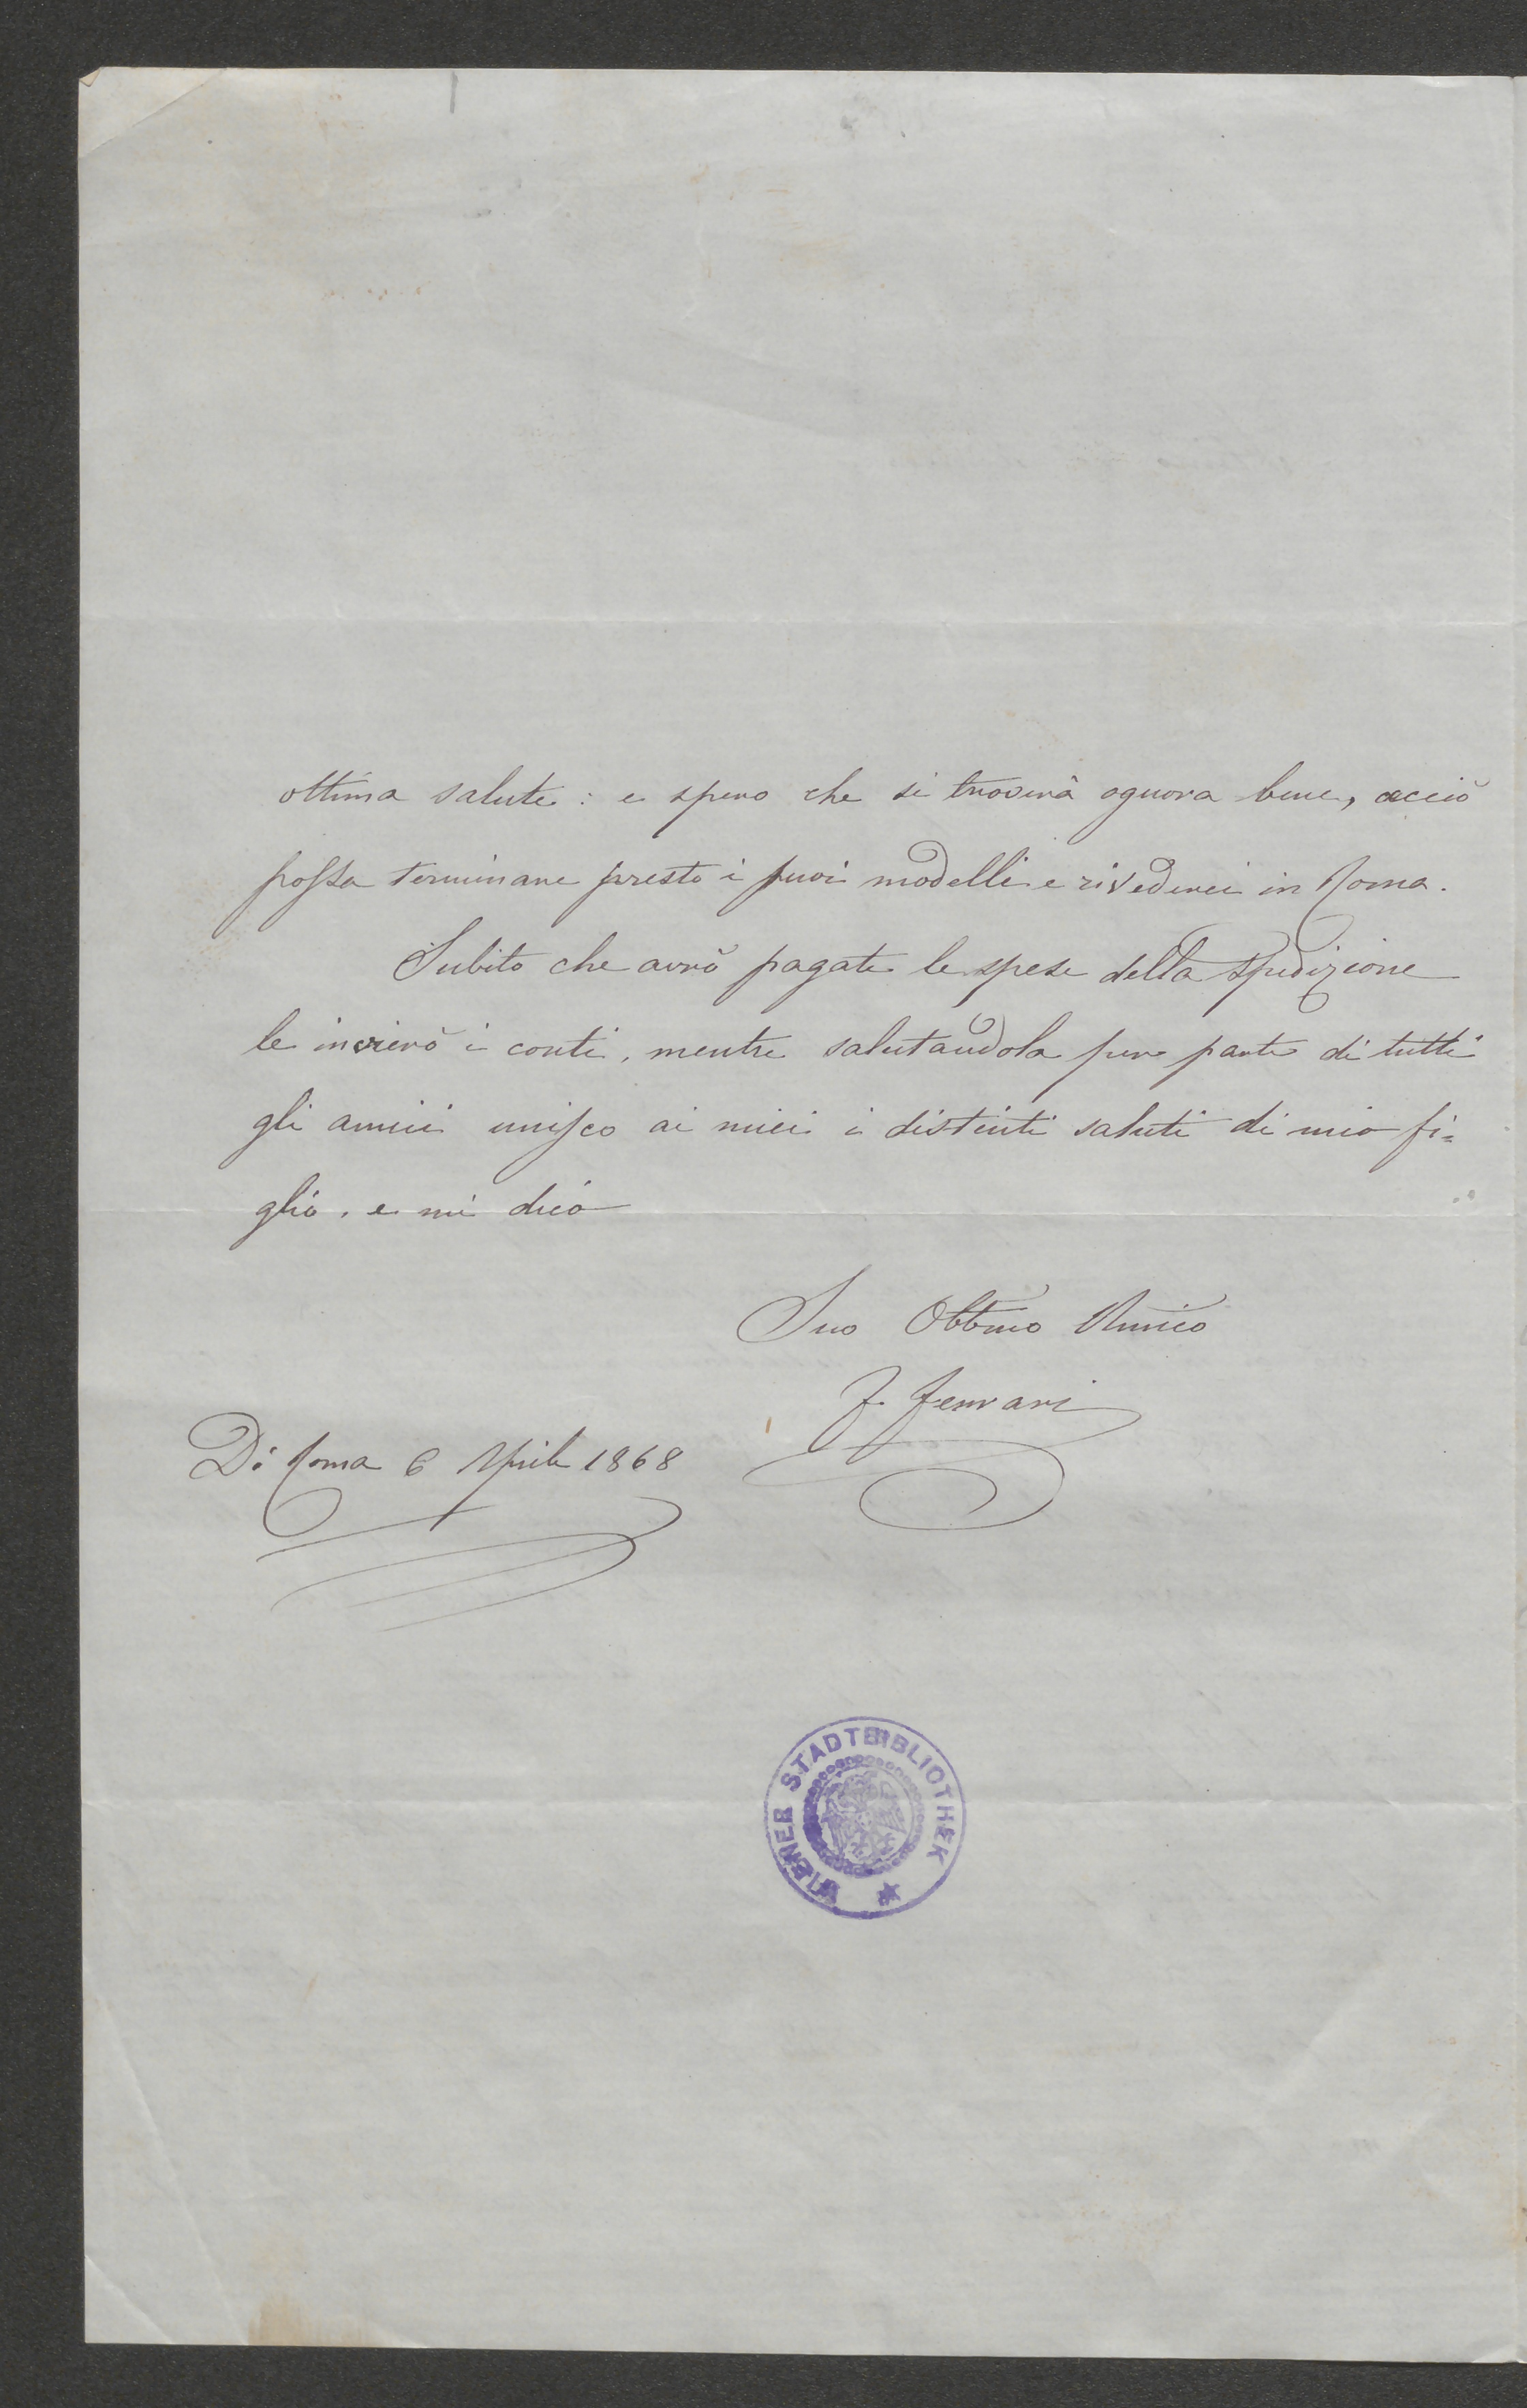 ottima salute: e spero che si troverà ognora bene, acciò
possa terminare presto i suoi modelli e rivederci in Roma.
Subito che avrò pagate le spese della spedizione
le invierò i conti, mentre salutandola per parte di tutti
gli amici unisco ai miei i distinti saluti di mio fi=
glio, e mi dico
Suo Obbmo Amico
F. Ferrari
Di Roma 6 Aprile 1868
WIENER STADTBIBLIOTHEK